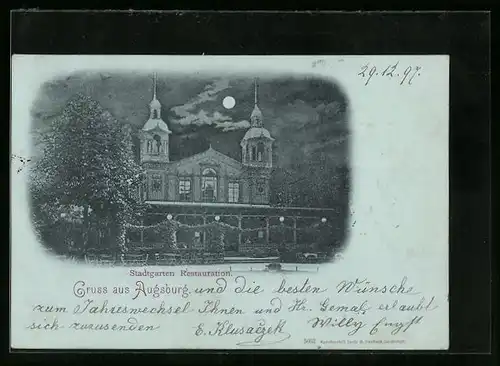 29.12.97.
Stadtgarten Restauration.
Gruss aus Augsburg. und die besten Wünsche
zum Jahreswechsel Ihnen und Hr. Gemal, erlaubt
sich zuzusenden E. Klusaczek Willy
5062